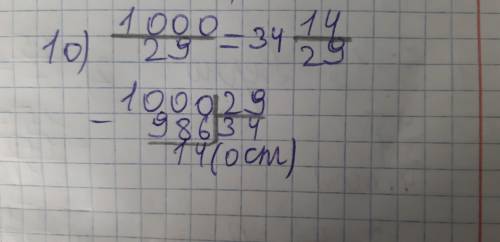 10) 1000/29 = 34 14/29
1000 | 29
- 986 | 34
14 (ост)